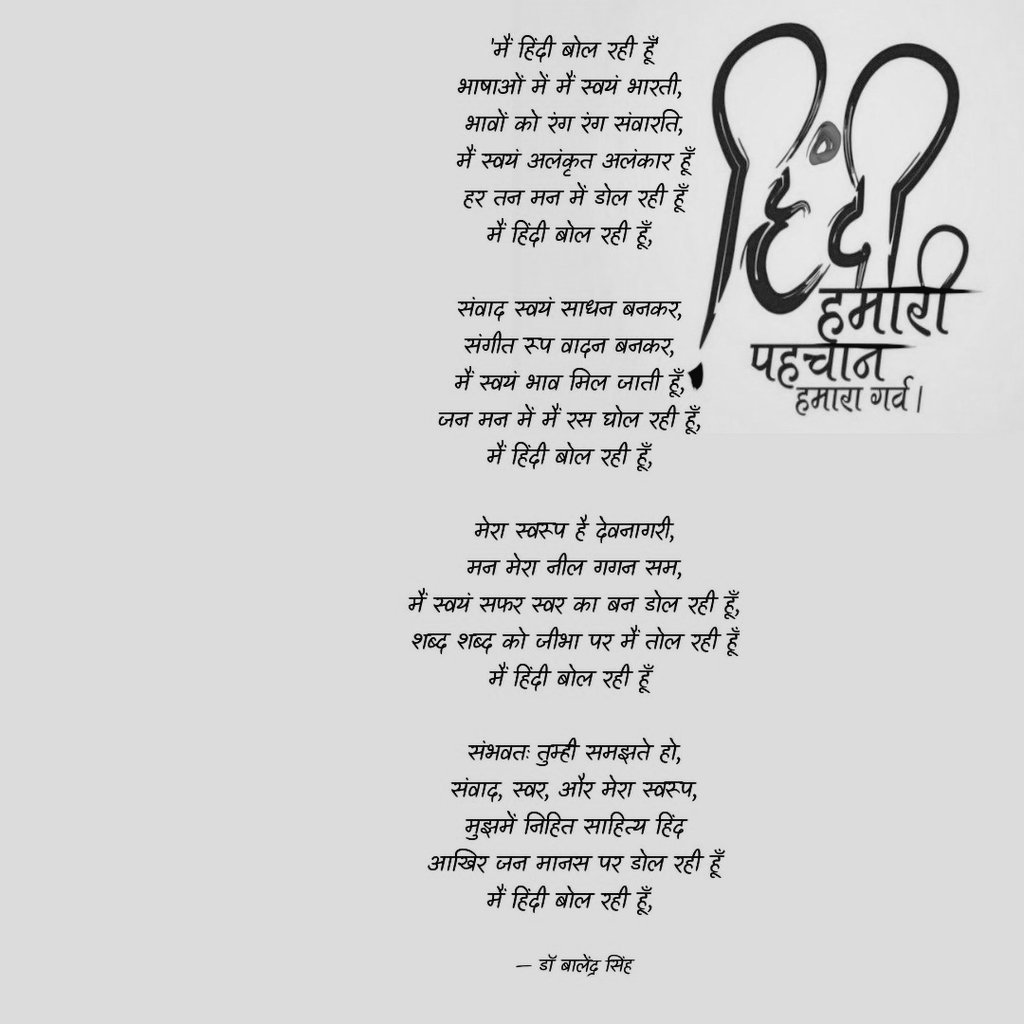 'मैं हिंदी बोल रही हूँ'
भाषाओं में मैं स्वयं भारती,
भावों को रंग रंग संवारति,
मैं स्वयं अलंकृत अलंकार हूँ
हर तन मन में डोल रही हूँ
मैं हिंदी बोल रही हूँ,
संवाद स्वयं साधन बनकर,
संगीत रूप वादन बनकर,
मैं स्वयं भाव मिल जाती हूँ,
जन मन में मैं रस घोल रही हूँ,
मैं हिंदी बोल रही हूँ,
मेरा स्वरूप है देवनागरी,
मन मेरा नील गगन सम,
मैं स्वयं सफर स्वर का बन डोल रही हूँ,
शब्द शब्द को जीभा पर मैं तोल रही हूँ
मैं हिंदी बोल रही हूँ
संभवतः तुम्ही समझते हो,
संवाद, स्वर, और मेरा स्वरूप,
मुझमें निहित साहित्य हिंद
आखिर जन मानस पर डोल रही हूँ
मैं हिंदी बोल रही हूँ,
— डॉ बालेंद्र सिंह
हिंदी
हमारी
पहचान
हमारा गर्व।